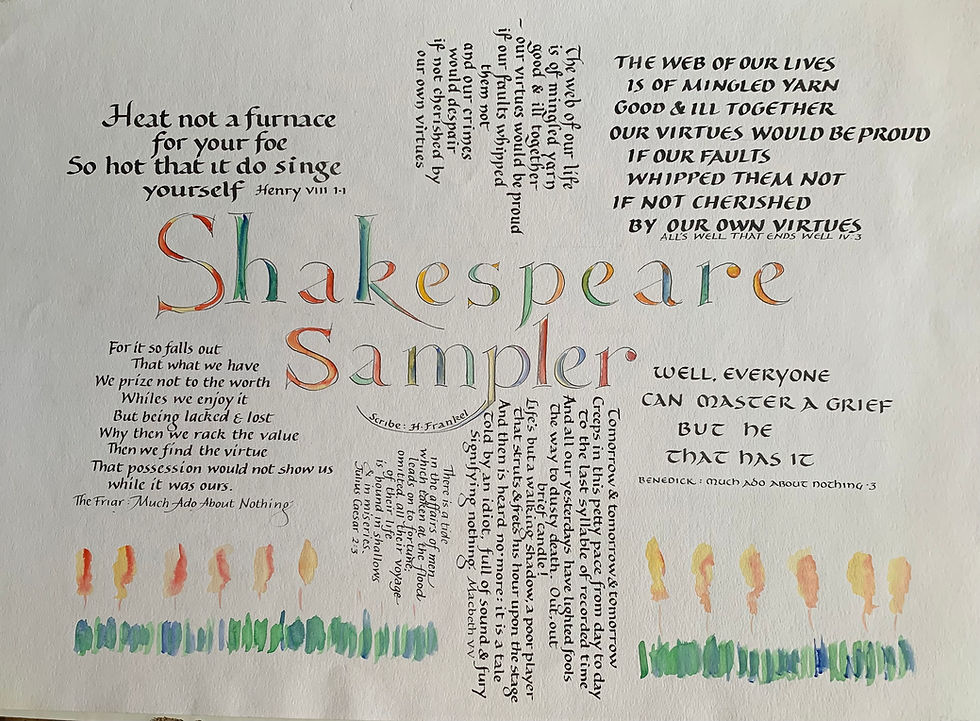 Heat not a furnace
for your foe
So hot that it do singe
yourself Henry VIII 1·1
The web of our life
is of mingled yarn
good & ill together
– our virtues would be proud
if our faults whipped
them not
and our crimes
would despair
if not cherished by
our own virtues
THE WEB OF OUR LIVES
IS OF MINGLED YARN
GOOD & ILL TOGETHER
OUR VIRTUES WOULD BE PROUD
IF OUR FAULTS
WHIPPED THEM NOT
IF NOT CHERISHED
BY OUR OWN VIRTUES
ALL'S WELL THAT ENDS WELL IV·3
Shakespeare
Sampler
Scribe: H·Frankel
For it so falls out
That what we have
We prize not to the worth
Whiles we enjoy it
But being lacked & lost
Why then we rack the value
Then we find the virtue
That possession would not show us
while it was ours.
The Friar: Much Ado About Nothing
There is a tide
in the affairs of men
which taken at the flood
leads on to fortune:
omitted, all their voyage
of their life
is bound in shallows
& in miseries
Julius Caesar 2·3
Tomorrow & tomorrow & tomorrow
Creeps in this petty pace from day to day
To the last syllable of recorded time
And all our yesterdays have lighted fools
The way to dusty death. Out, out
brief candle!
Life's but a walking shadow, a poor player
That struts & frets his hour upon the stage
And then is heard no more: it is a tale
Told by an idiot, full of sound & fury
Signifying nothing. Macbeth V.V.
WELL, EVERYONE
CAN MASTER A GRIEF
BUT HE
THAT HAS IT
BENEDICK: MUCH ADO ABOUT NOTHING·3